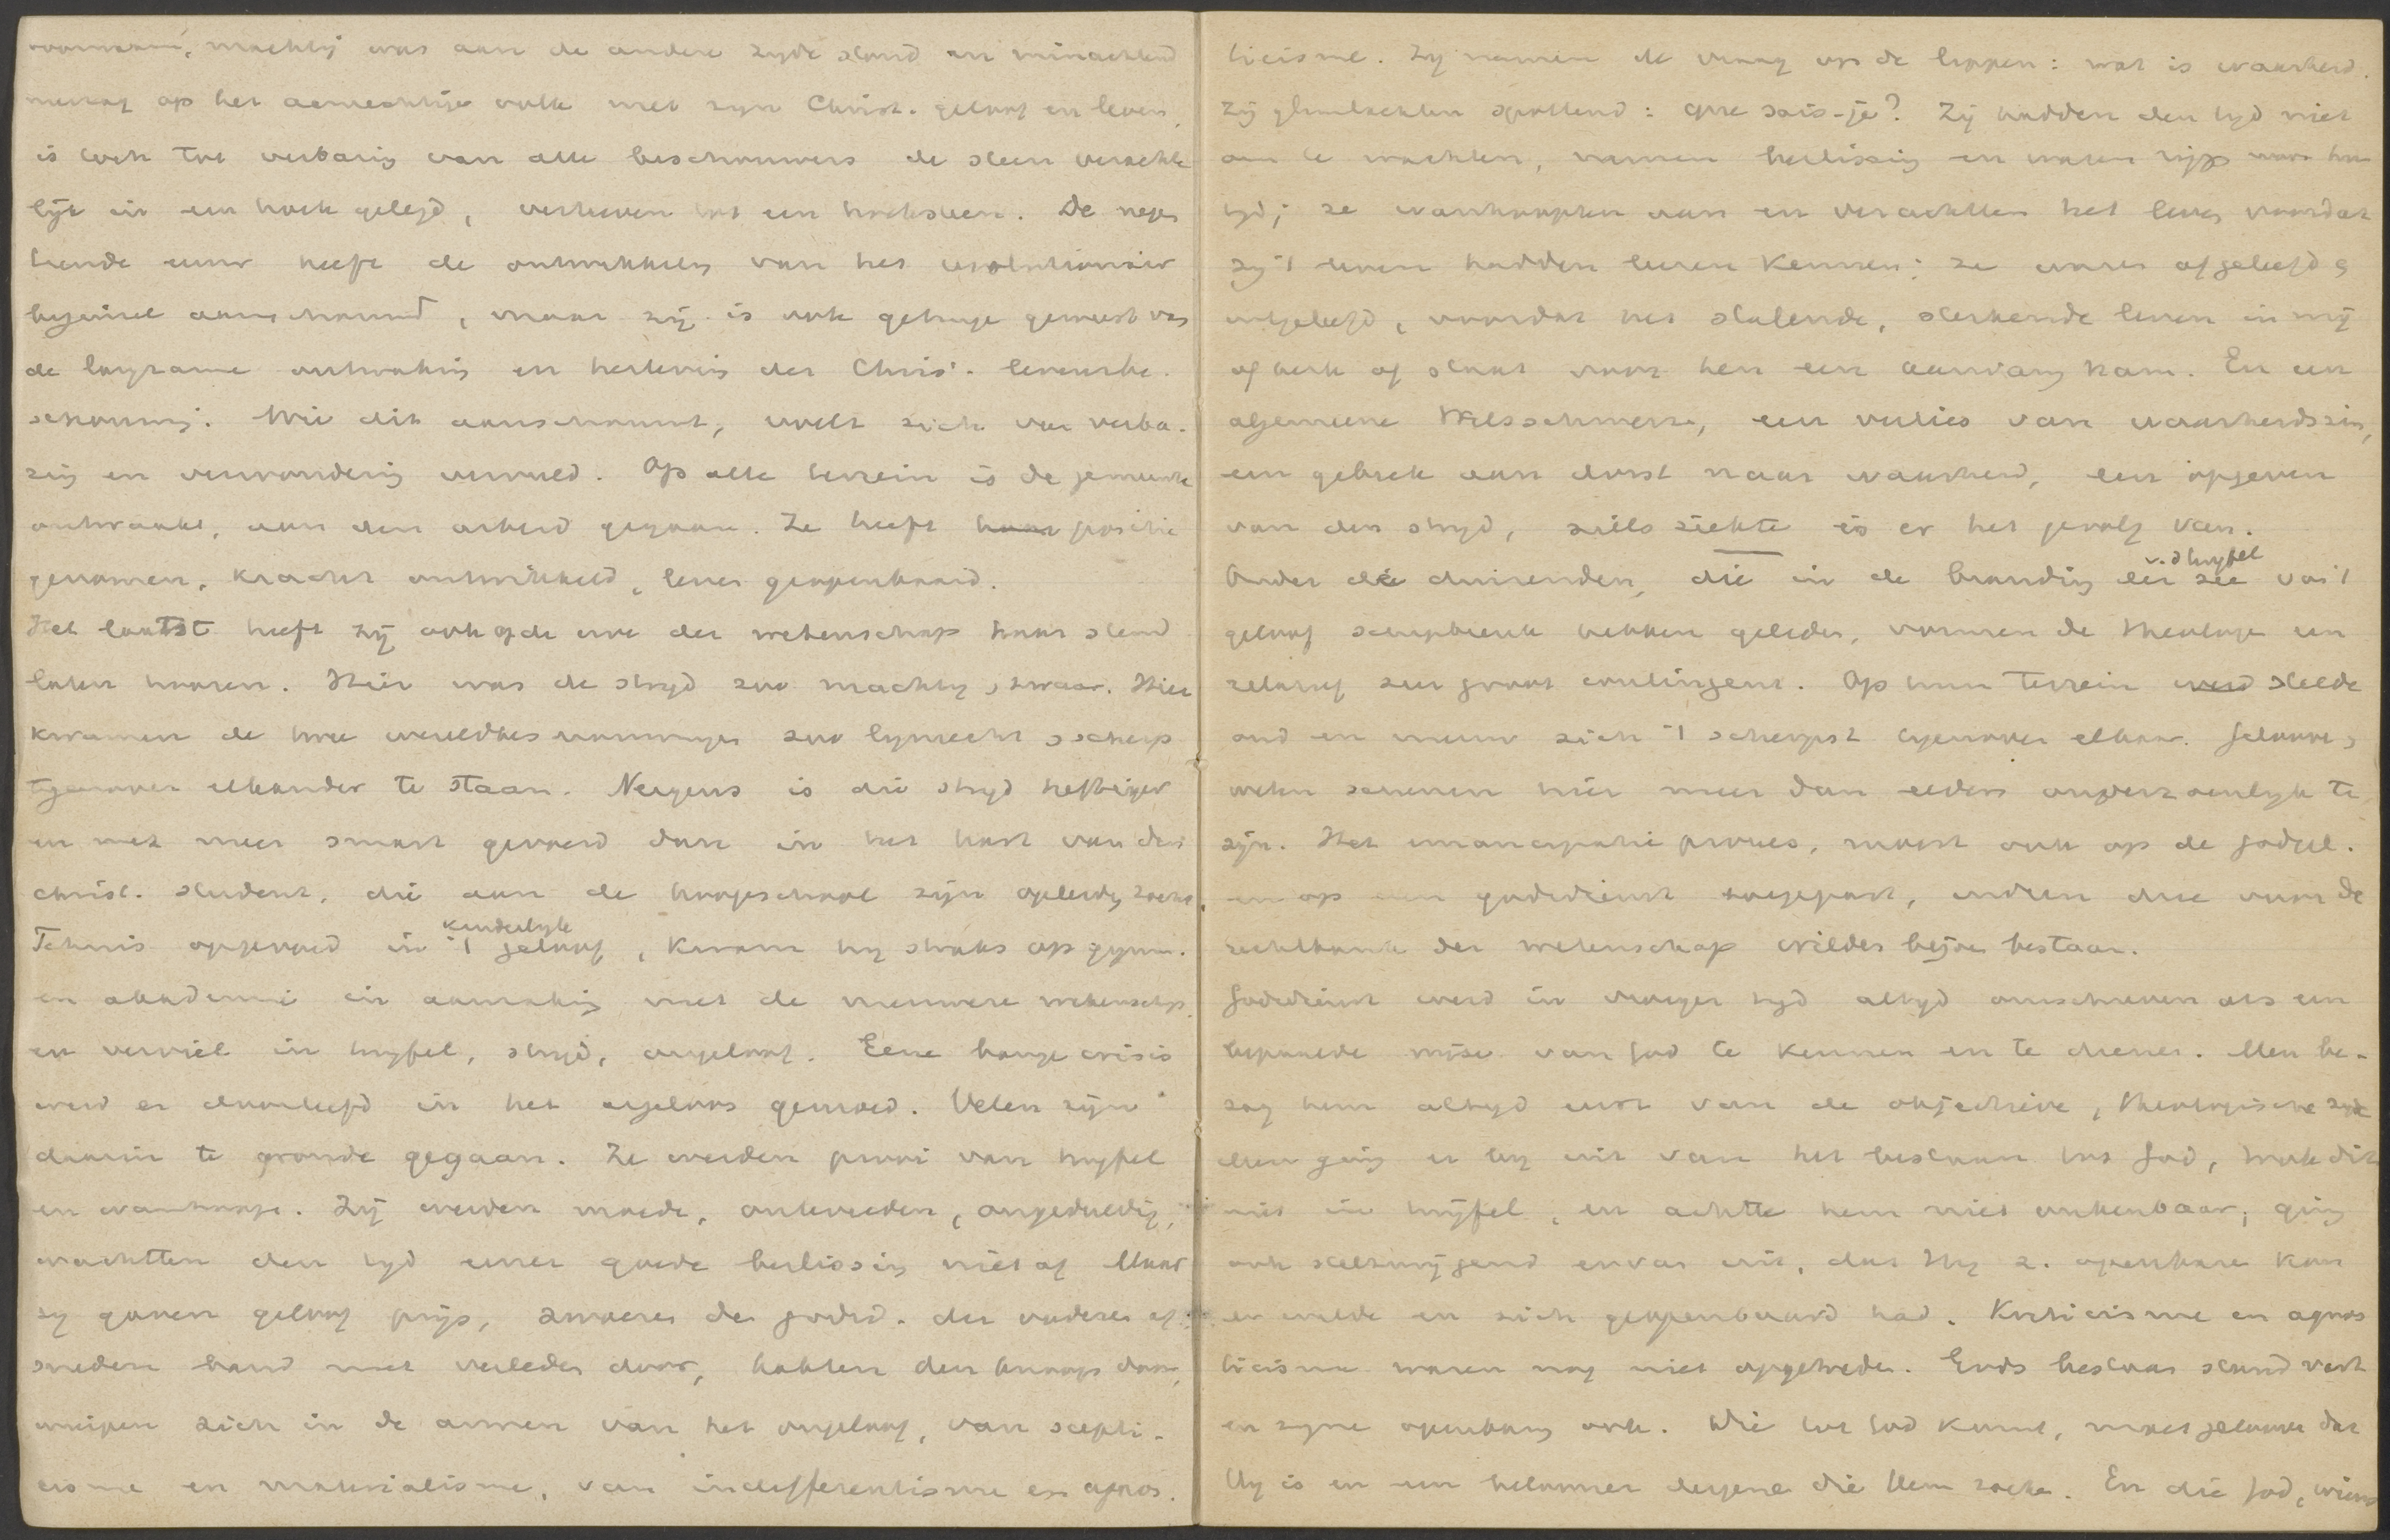 voornaam, machtig was aan de andere zyde stond en minachtend
neerzag op het aamechtige volk met zyn Christ. geloof en leven,
is toch tot verbazing van alle beschouwers de steen verachte
lijk in een hoek gelegd, verheven tot een hoeksteen. De negen
tiende eeuw heeft de ontwikkeling van het revolutionair
beginsel aanschouwd, maar zij is ook getuige geweest van
de langzame ontwaking en herleving der Christ. levensbe-
schouwing. Wie dit aanschouwt, voelt zich van verba-
zing en verwondering vervuld. Op elk terrein is de gemeente
ontwaakt, aan den arbeid gegaan. Ze heeft haar positie
genomen, kracht ontwikkeld, leven geopenbaard.
Het laatst heeft zij ook op de erve der wetenschap haar stem
laten hooren. Hier was de stryd zoo machtig, zwaar. Hier
kwamen de twee wereldbeschouwingen zoo lynrecht, scherp
tegenover elkander te staan. Nergens is die stryd heftiger
en met meer smart gevoerd dan in het hart van den
christ. student, die aan de hoogeschool zijn opleiding zocht.
Tehuis opgevoed in 't kinderlyk geloof, kwam hy straks op gymn.
en akademie in aanraking met de nieuwere wetenschap,
en verviel in twyfel, stryd, ongeloof. Eene bange crisis
werd er doorleefd in het argeloos gemoed. Velen zijn
daarin te gronde gegaan. Ze werden prooi van twyfel
en wanhoop. Zij werden moede, ontevreden, ongeduldig,
wachtten den tyd eener goede beslissing niet af. Maar
zy gaven geloof prijs, zwoeren de godsd. der vaderen af,
sneden band met verleden door, hakten den knoop door,
wierpen zich in de armen van het ongeloof, van scepti-
cisme en materialisme, van indifferentisme en agnos-
ticisme. Zy namen de vraag op de lippen: wat is waarheid.
Zij glimlachten spottend: que sais-je? Zij hadden den tyd niet
om te wachten, namen beslissing en waren rijp voor hun
tyd; ze wanhoopten aan en verachtten het leven voordat
zy 't leven hadden leeren kennen; ze waren afgeleefd &
uitgeleefd, voordat het stalende, sterkende leven in mij
of kerk of staat voor hen een aanvang nam. En een
algemeene Weltschmerz, een verlies van waarheidszin,
een gebrek aan dorst naar waarheid, een opgeven
van den stryd, zielsziekte is er het gevolg van.
Onder de duizenden, die in de branding der zee v. d. twyfel van 't
geloof schipbreuk hebben geleden, vormen de theologen een
relatief zeer groot contingent. Op hun terrein werd stelde
oud en nieuw zich 't scherpst tegenover elkaar. Gelooven,
weten schenen hier meer dan elders onverzoenlyk te
zijn. Het emancipatie proces, moest ook op de godgel.
en op den godsdienst toegepast, indien die voor de
rechtbank der wetenschap wilden blijven bestaan.
Godsdienst werd in vroeger tyd altyd omschreven als een
bepaalde wijze van God te kennen en te dienen. Men be-
zag hem altyd eerst van de objectieve, theologische zyde
Men ging er by uit van het bestaan van God, trok dit
niet in twijfel, en achtte hem niet onkenbaar; ging
ook stelzwijgend ervan uit, dat Hy z. openbaren kon
en wilde en zich geopenbaard had. Kriticisme en agnos
ticisme waren nog niet opgetreden. Gods bestaan stond vast
en zyne openbaring ook. Wie tot God komt, moet gelooven dat
Hy is en een belooner dergene die Hem zoeken. En die God, wiens